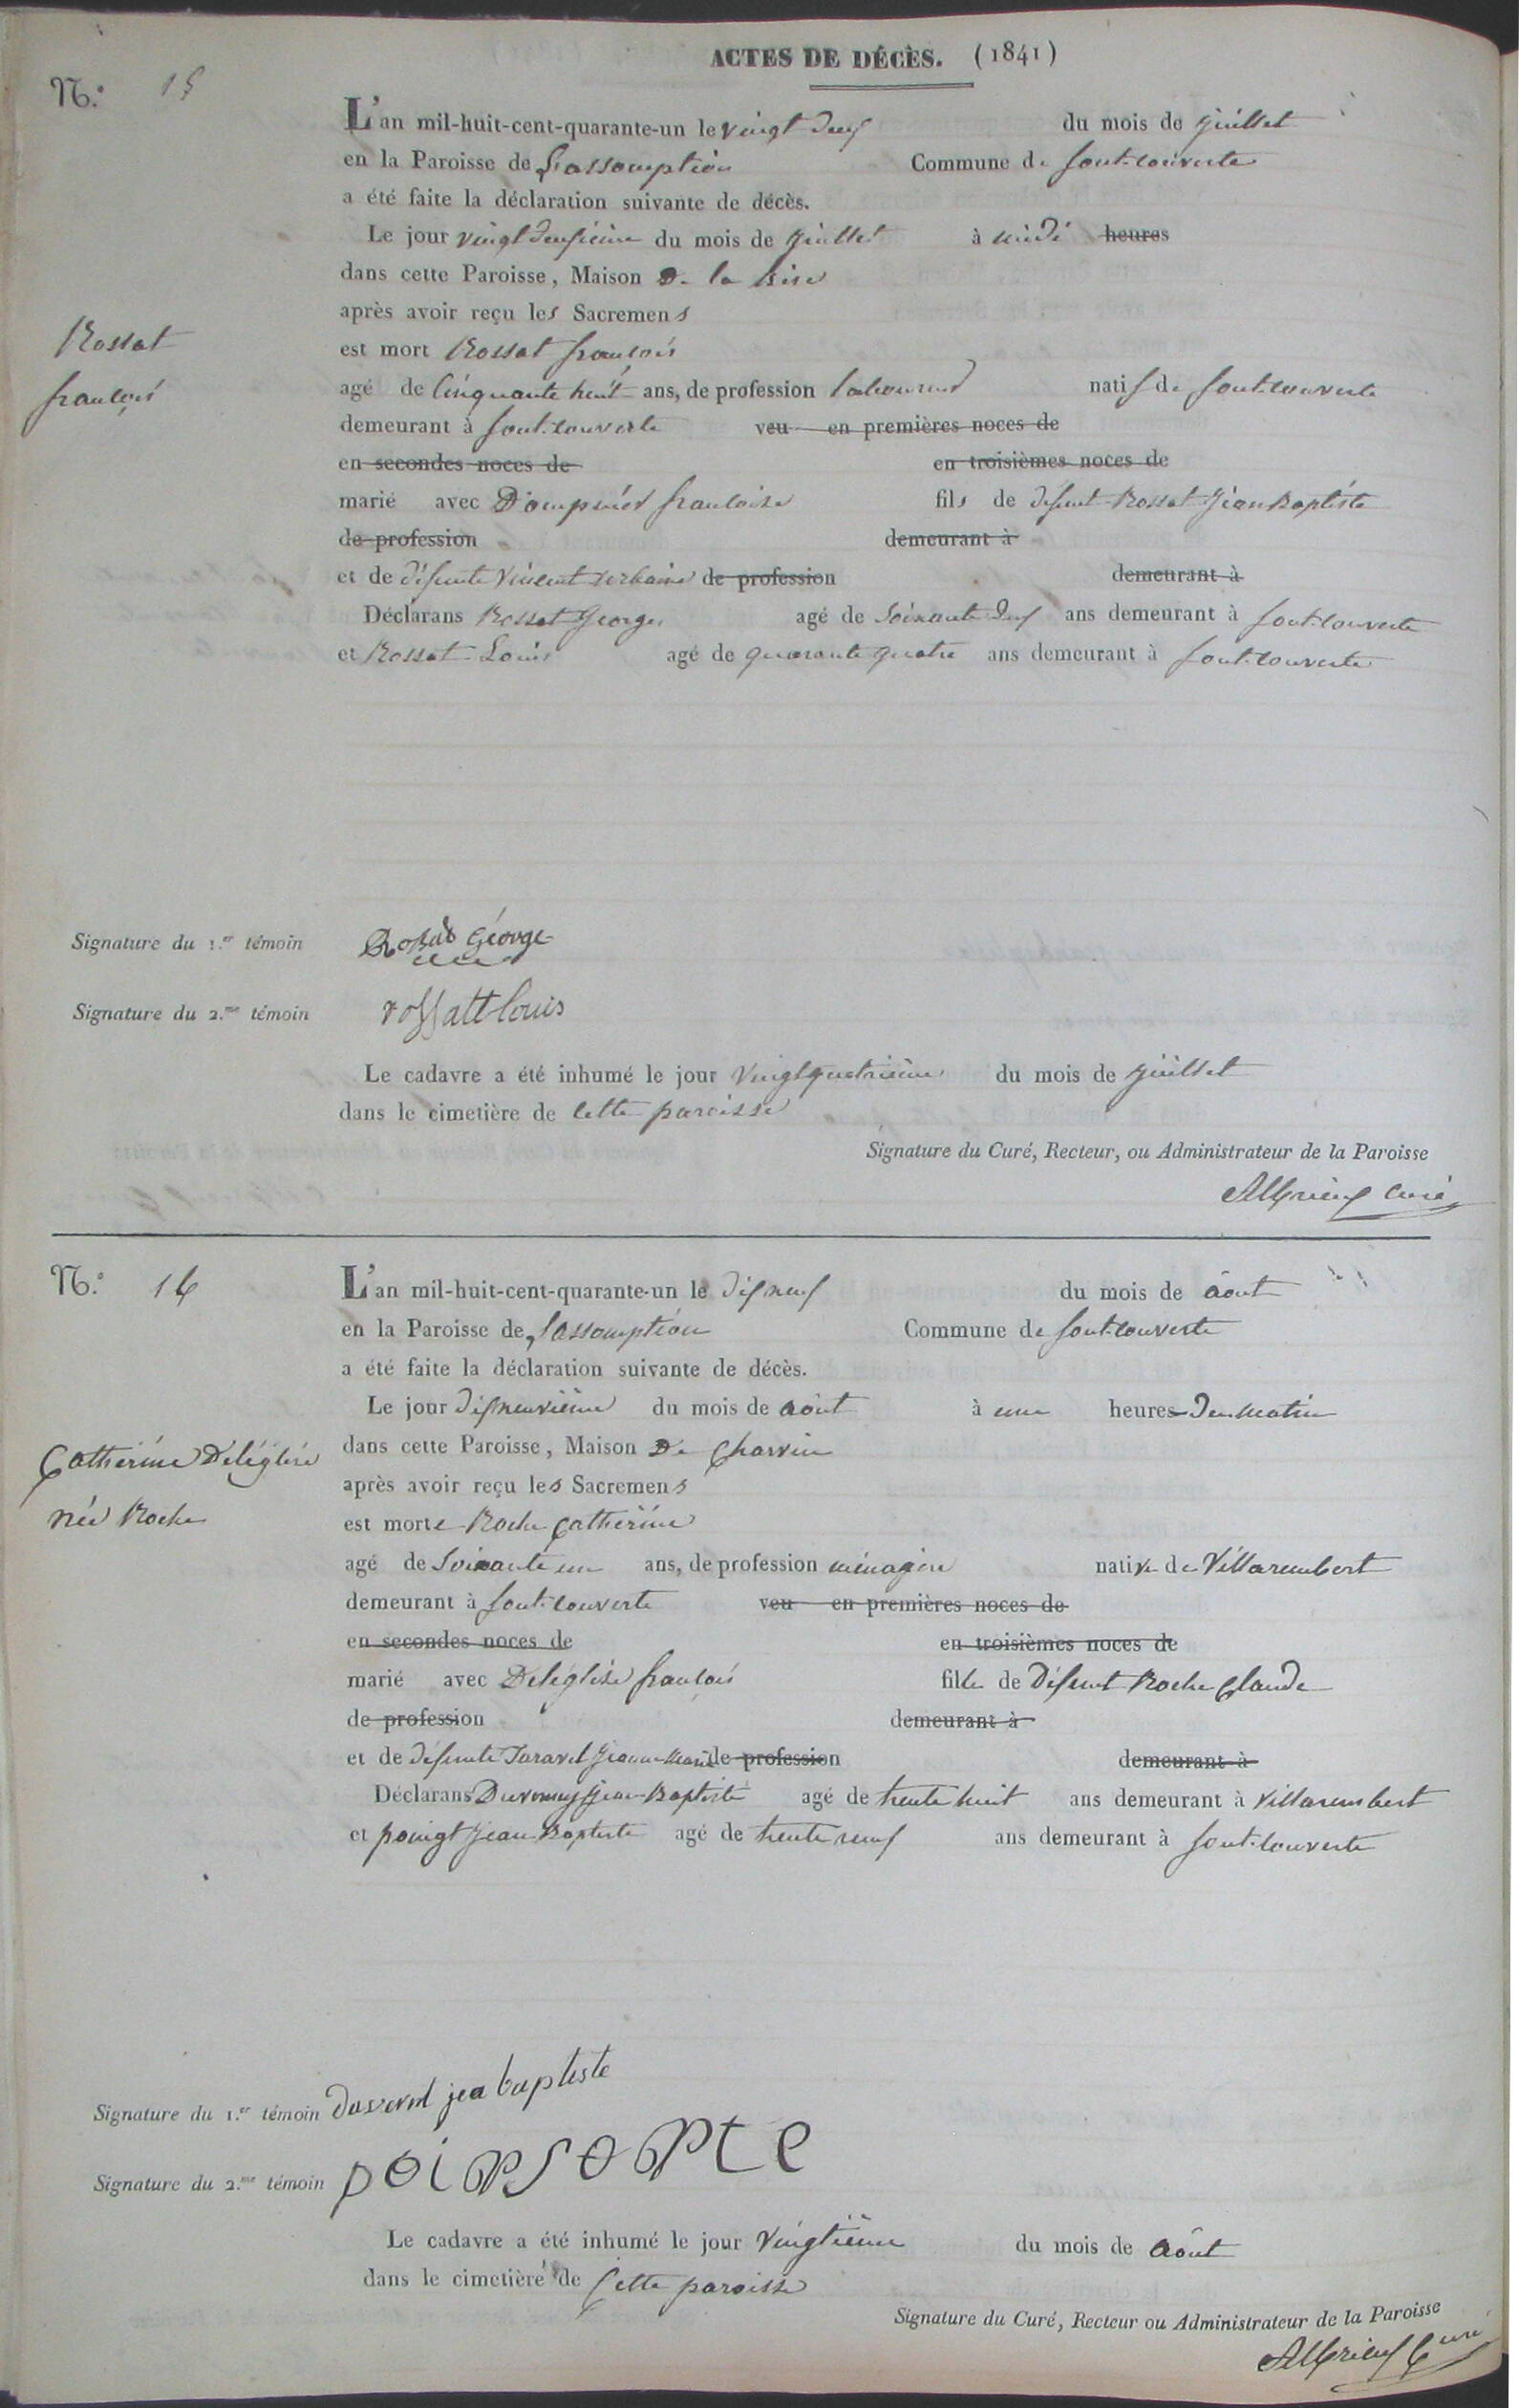 ACTES DE DÉCÈS. (1841)
N.° 15
L'an mil-huit-cent-quarante-un le vingt deux du mois de juillet
en la Paroisse de L'assomption Commune de font-couverte
a été faite la déclaration suivante de décès.
Le jour vingt deuxième du mois de juillet à midi heures
dans cette Paroisse, Maison De la
après avoir reçu les Sacremens
Rossat
françois
est mort Rossat françois
agé de Cinquante huit ans, de profession laboureur natif de font-couverte
demeurant à font-couverte veu en premières noces de
en secondes noces de en troisièmes noces de
marié avec Dompnier françoise fils de défunt Rossat Jean Baptiste
de profession demeurant à
et de défunte Vincent urbaine de profession demeurant à
Déclarans Rossat George agé de Soixante deux ans demeurant à font couverte
et Rossat Louis agé de quarante quatre ans demeurant à font-couverte
Signature du 1.er témoin Rossat George
Signature du 2.me témoin rossatt louis
Le cadavre a été inhumé le jour vingt quatrième du mois de juillet
dans le cimetière de cette paroisse
Signature du Curé, Recteur, ou Administrateur de la Paroisse
curé
N.° 16
L'an mil-huit-cent-quarante-un le dix neuf du mois de août
en la Paroisse de l'assomption Commune de font-couverte
a été faite la déclaration suivante de décès.
Le jour dix neuvième du mois de août à une heures du matin
dans cette Paroisse, Maison De Charvin
après avoir reçu les Sacremens
Catherine Déléglise
née Roche
est morte Roche Catherine
agé de Soixante un ans, de profession ménagère native de Villarembert
demeurant à font-couverte veu en premières noces de
en secondes noces de en troisièmes noces de
marié avec Déléglise françois fille de Défunt Roche Claude
de profession demeurant à
et de défunte Taravel Jeanne Marie de profession demeurant à
Déclarans Duverney Jean Baptiste agé de trente huit ans demeurant à Villarembert
et poingt Jean Baptiste agé de trente neuf ans demeurant à font-couverte
Signature du 1.er témoin jea baptiste
Signature du 2.me témoin
Le cadavre a été inhumé le jour vingtième du mois de Août
dans le cimetière de Cette paroisse
Signature du Curé, Recteur ou Administrateur de la Paroisse
Curé